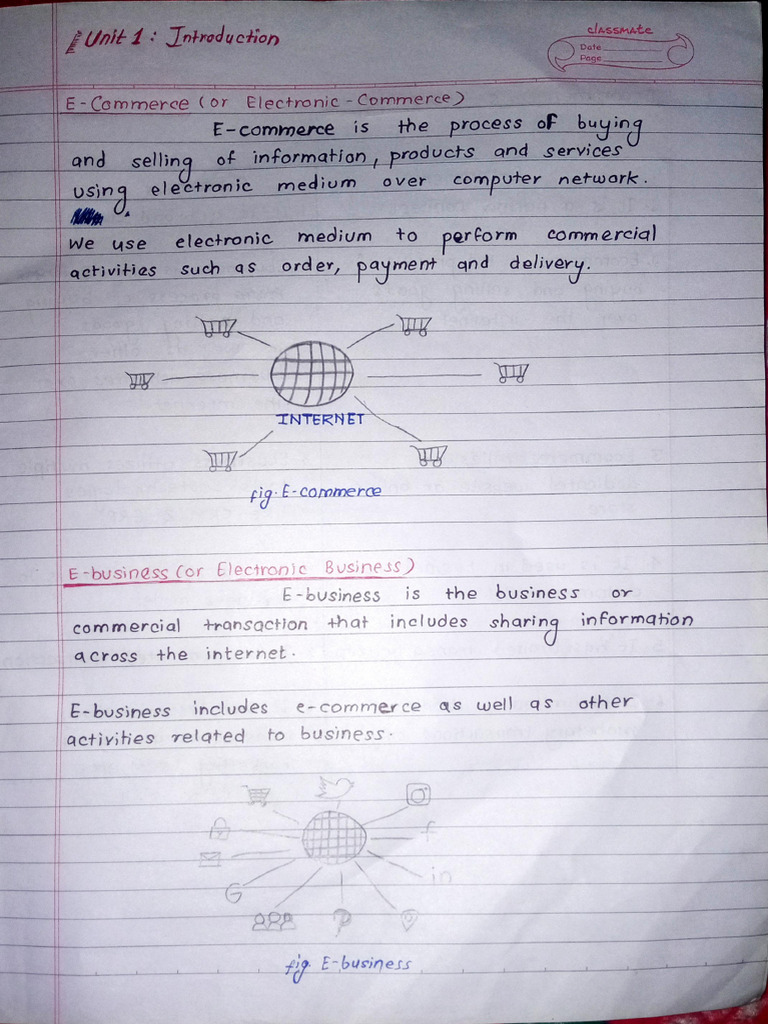 Unit 1 : Introduction
classmate
Date
Page
E-Commerce (or Electronic-Commerce)
E-commerce is the process of buying
and selling of information, products and services
using electronic medium over computer network.
We use electronic medium to perform commercial
activities such as order, payment and delivery.
INTERNET
fig. E-commerce
E-business (or Electronic Business)
E-business is the business or
commercial transaction that includes sharing information
across the internet.
E-business includes e-commerce as well as other
activities related to business.
f
in
G
fig. E-business